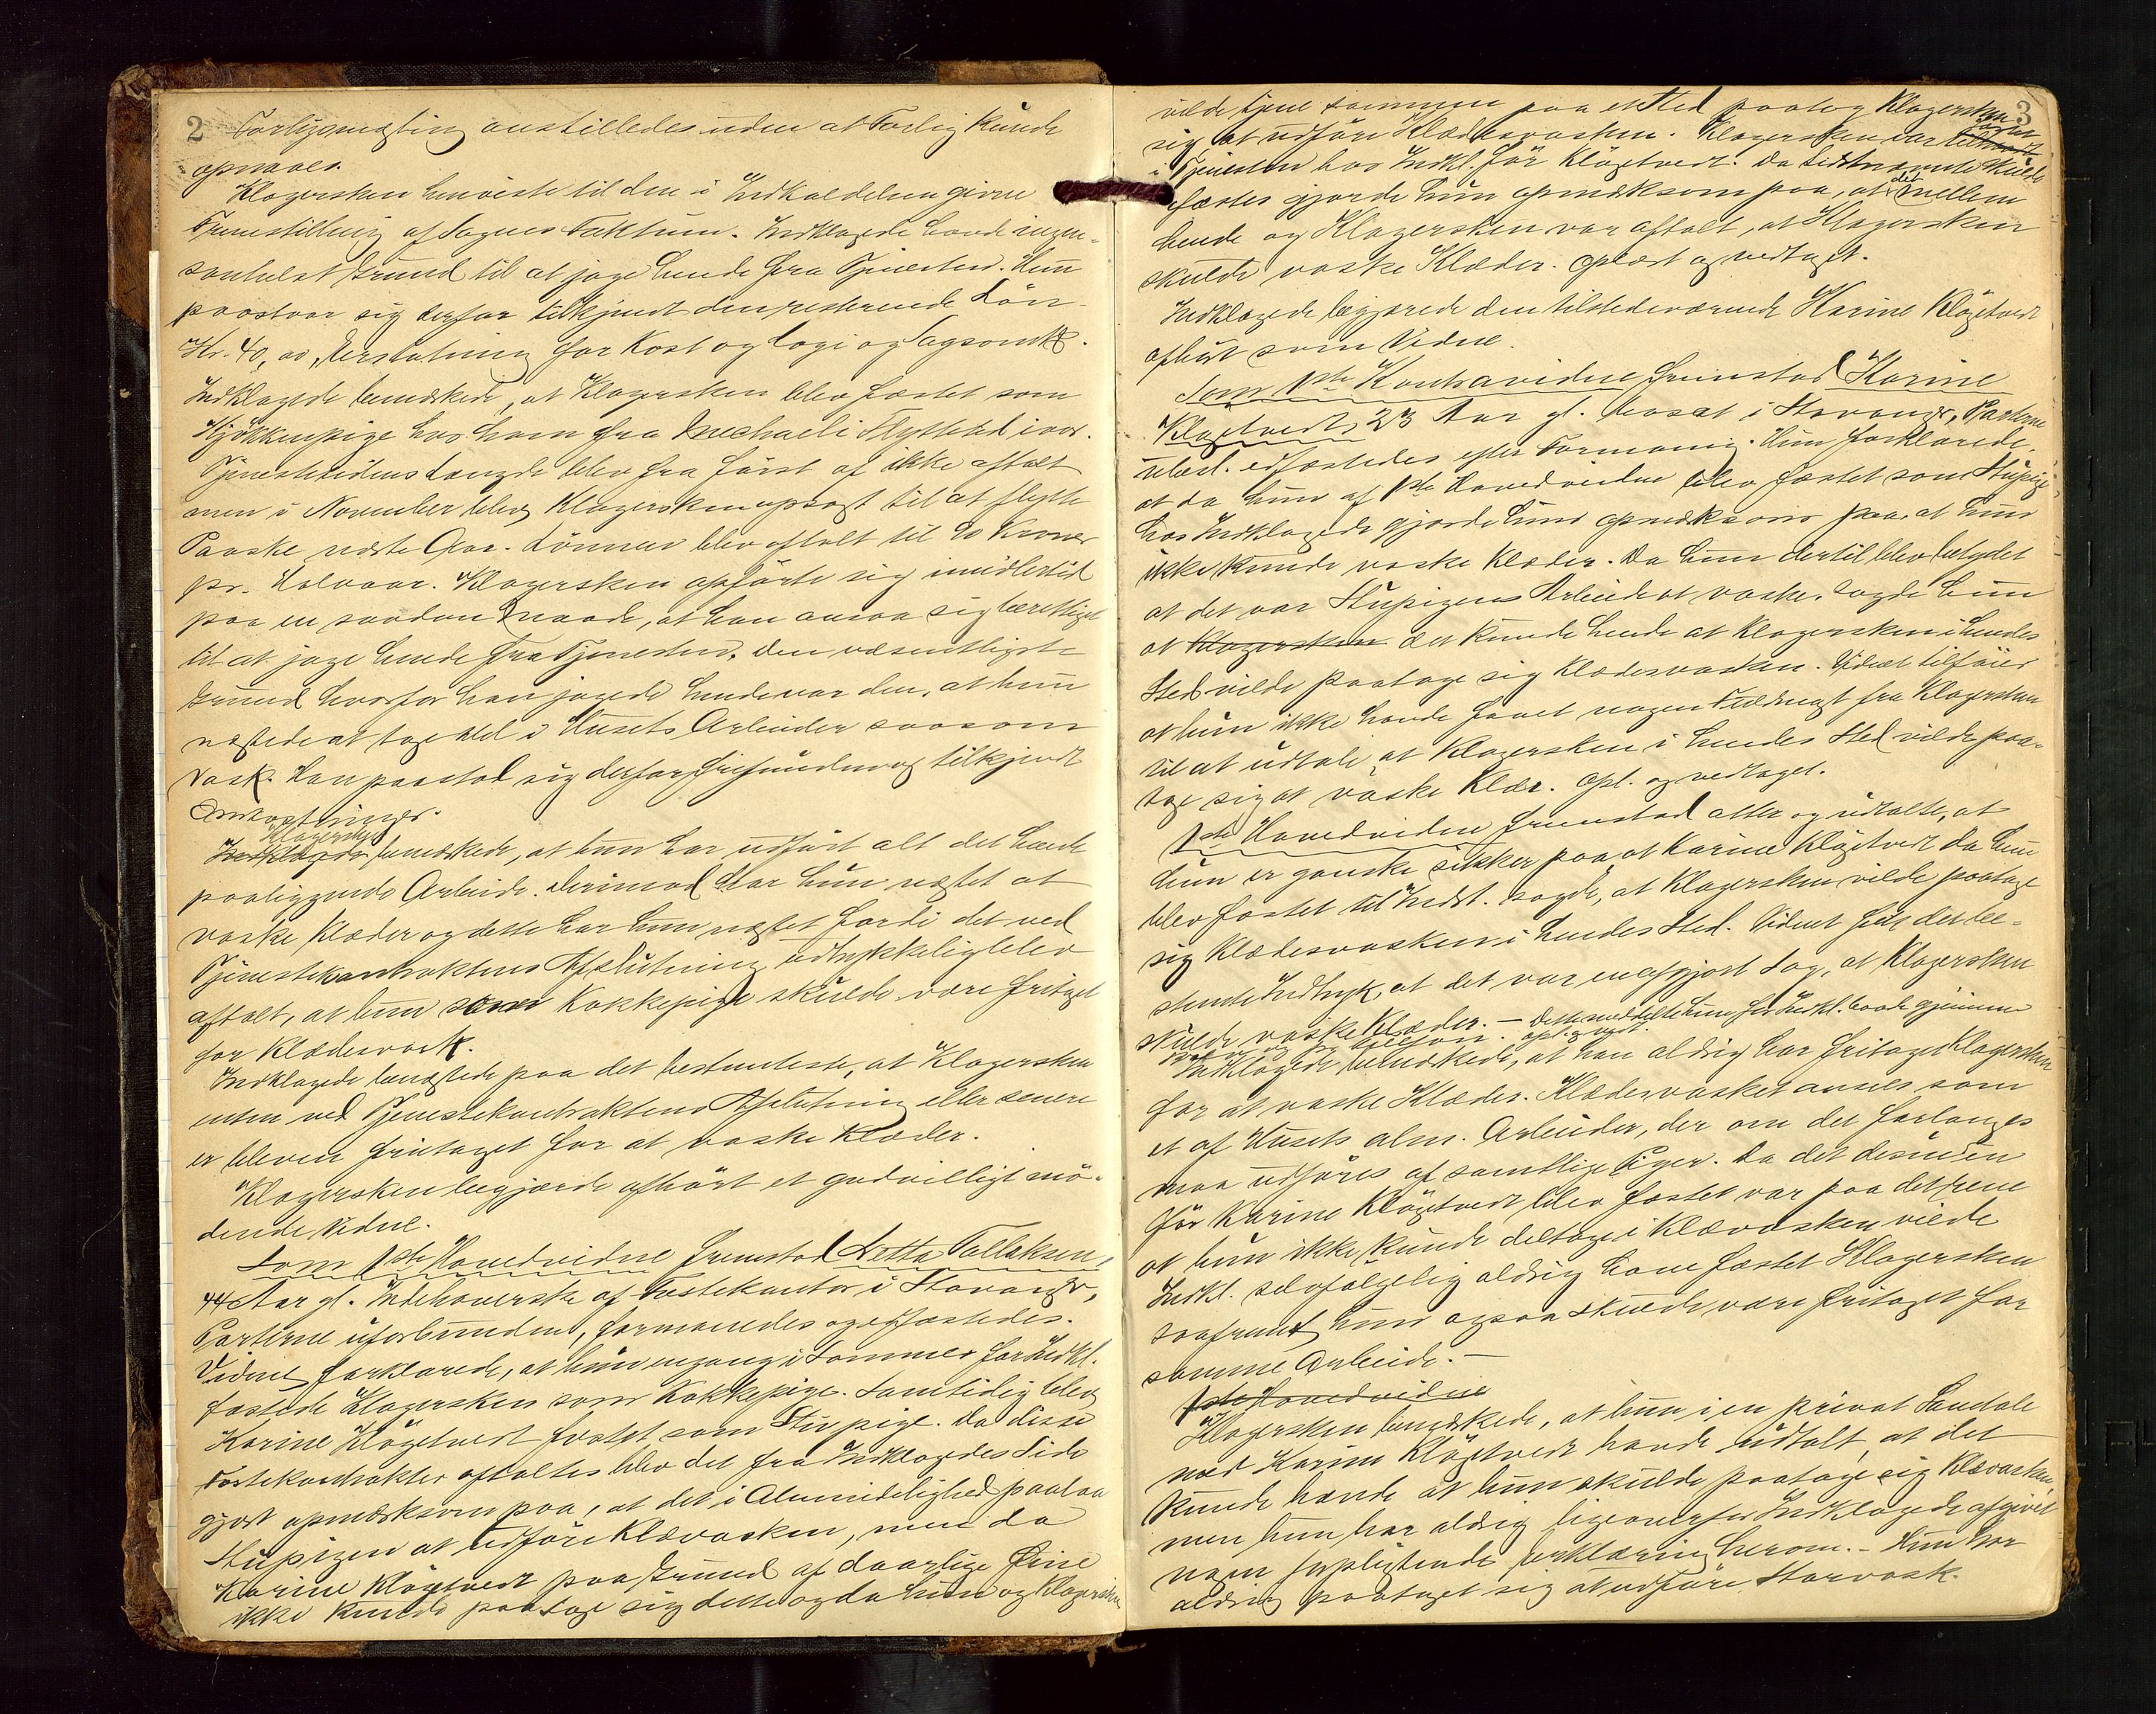 2
Forligsmægling anstilledes uden at Forlig kunde
opnaaes.
Klagersken henviste til den i Indkaldelsen givne
Fremstilling af Sagens Faktum. Indklagede havde ingen-
somhelst Grund til at jage hende fra Tjenesten. Hun
paastaar sig derfor tilkjendt den resterende Løn
Kr. 40, Erstatning for Kost og Logi og Sagsomk.
Indklagede bemærkede, at Klagersken blev fæstet som
Kjøkkenpige hos ham fra Mechaeli Flyttetid ivor.
Tjenestetidens Længde blev fra først af ikke aftalt
men i November blev Klagersken opsagt til at flytte
Paaske næste Aar. Lønnen blev aftalt til 80 Kroner
pr. Halvaar. Klagersken opførte sig imidlertid
paa en saadan Maade, at han ansaa sig berettiget
til at jage hende fra Tjenesten. Den væsentligste
Grund hvorfor han jagede hende var den, at hun
nægtede at tage Del i Husets Arbeider saasom
Vask. Han paastod sig derfor frifunden og tilkjendt
Omkostninger.
Klagersken
Indklagede bemærkede, at hun har udført alt det hende
paaliggende Arbeide. Derimod har hun nægtet at
vaske Klæder og dette har hun nægtet fordi det ved
Tjenestekontraktens Afslutning udtrykkelig blev
aftalt, at hun som Kokkepige skulde være fritaget
for Klædesvask.
Indklagede benægtede paa det bestemteste, at Klagersken
enten ved Tjenestekontraktens Afslutning eller senere
er bleven fritaget for at vaske Klæder.
Klagersken begjærde afhørt et godvilligt mø-
dende Vidne.
Som 1ste Hovedvidne fremstod Letta Tallaksen,
44 Aar gl. Indehaverske af Fæstekontor i Stavanger,
Parterne uforbunden, formanedes og edfæstedes.
Vidnet forklarede, at hun engang i Sommer for Indkl.
fæstede Klagersken som Kokkepige. Samtidig blev
Karine Kløgetvedt fæstet som Stupige. Da disse
Fæstekontrakter aftaltes blev det fra Indklagedes Side
gjort opmærksom paa, at det i Almindelighed paalaa
Stupigen at udføre Klævasken, men da
Karine Kløgetvedt paa Grund af daarlige Øine
ikke kunde paatage sig dette og da hun og Klagersken
3
vilde tjene sammen paa et Sted paatog Klagersken
sig at udføre Klædesvasken. Klagersken var
i Tjenesten hos Indkl. før Kløgetvedt. Da sidstnævnte skulde
fæstes gjorde hun opmærksom paa, at det mellem
hende og Klagersken var aftalt, at Klagersken
skulde vaske Klæder. Oplæst og vedtaget.
Indklagede begjærede den tilstedeværende Karine Kløgetvedt
afhørt som Vidne.
Som 1ste Kontravidne fremstod Karine
Kløgetvedt, 23 Aar gl. bosat i Stavanger, Parterne
ubesl. edfæstedes efter Formaning. Hun forklarede,
at da hun af 1ste Hovedvidne blev fæstet som Stupige
hos Indklagede gjorde hun opmærksom paa, at hun
ikke kunde vaske Klæder. Da hun dertil blev betydet
at det var Stupigens Arbeide at vaske, sagde hun
at Klagersken det kunde hende at Klagersken i hendes
Sted vilde paatage sig Klædesvasken. Vidnet tilføier
at hun ikke havde faaet nogen Fuldmagt fra Klagersken
til at udtale, at Klagersken i hendes Sted vilde paa-
tage sig at vaske Klær. Opl. og vedtaget.
1ste Hovedvidne fremstod atter og udtalte, at
hun er ganske sikker paa at Karine Kløgetvedt da hun
blev fæstet til Indst. sagde, at Klagersken vilde paatage
sig Klædesvasken i hendes Sted. Vidnet fik det be-
stemte Indtryk, at det var en afgjort Sag, at Klagersken
skulde vaske Klæder. – Dette meddelte hun for Indkl. baade gjennem
opl. og vedt.
Indklagede bemærkede, at han aldrig har fritaget Klagersken
for at vaske Klæder. Klædesvasket ansees som
et af Husets alm. Arbeider, der om det forlanges
maa udføres af samtlige Piger. Da det desuden
før Karine Kløgetvedt blev fæstet var paa det rene
at hun ikke kunde deltage i Klævasken vilde
Indkl. selvfølgelig aldrig have fæstet Klagersken
saafremt hun ogsaa skulde være fritaget for
samme Arbeide. –
1ste Hovedvidne
Klagersken bemærkede, at hun i en privat Samtale
med Karine Kløgetvedt havde udtalt, at det
kunde hende at hun skulde paatage sig Klævasken
men hun har aldrig ligeoverfor Indklagede afgivet
nogen forpligtende Erklæring herom. – Hun har
aldrig paataget sig at udføre Storvask.